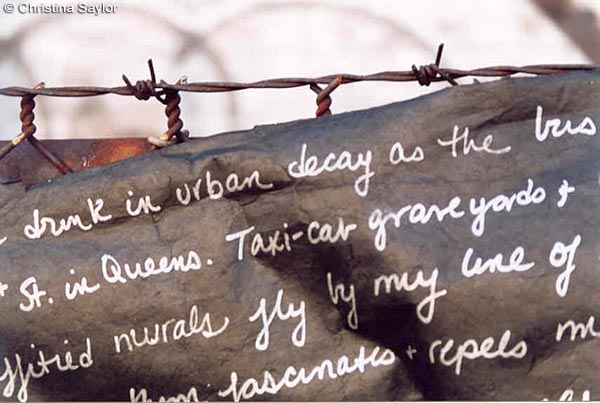 © Christina Saylor
drink in urban decay as the bus
St. in Queens. Taxi-cab graveyards +
ffitied murals fly by my line of
them fascinates + repels m